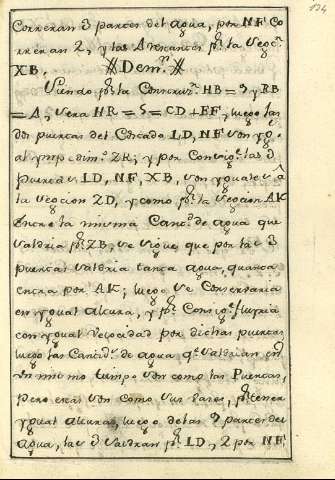 124
Correrán 3 partes del agua, por NF Co
rrerán 2, y las 4 restantes pr. la secn.
XB. Demn.
Siendo pr. la Construn. HB = 3 y RB
= 2, será HR = 5 = CD + EF; luego las
dos puertas del Costado LD, NF son yg.
al ZR; y por Consigte. las 3
puertas LD, NF, XB, son yguales â
la seccion ZD, y como pr. la seccion AK
entra la misma Cantd. de agua que
saldria pr. ZB, se sigue que por las 3
puertas saldria tanta agua, quanta
entra por AK; luego se Conservaria
en ygual altura, y pr. Consigte. fluyria
con ygual velocidad por dichas puertas
luego las Cantids. de agua q. saldrian en
un mismo tiempo son como las Puertas,
pero estas son como sus bases, pr. tener
ygual altura, luego de las 9 partes del
Agua, las 3 saldran pr. LD, 2 por NF